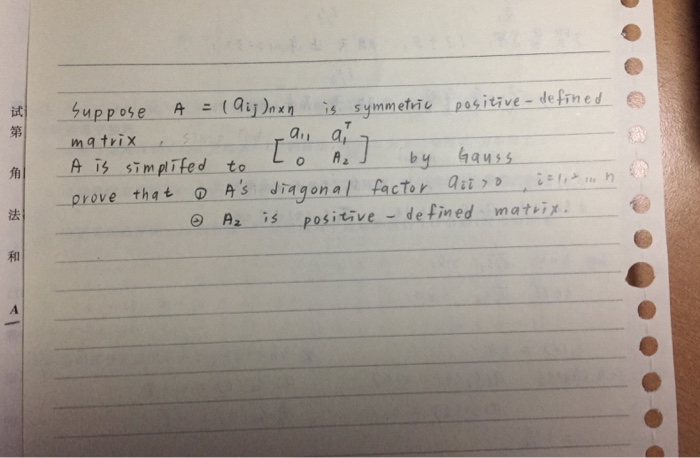 试
第
角
法
和
A
Suppose A = (aij)n×n is symmetric positive-defined
matrix,
A is simplifed to [a11 a1^T
0 A2] by Gauss
prove that ① A's diagonal factor aii>0, i=1,2...n
② A2 is positive-defined matrix.